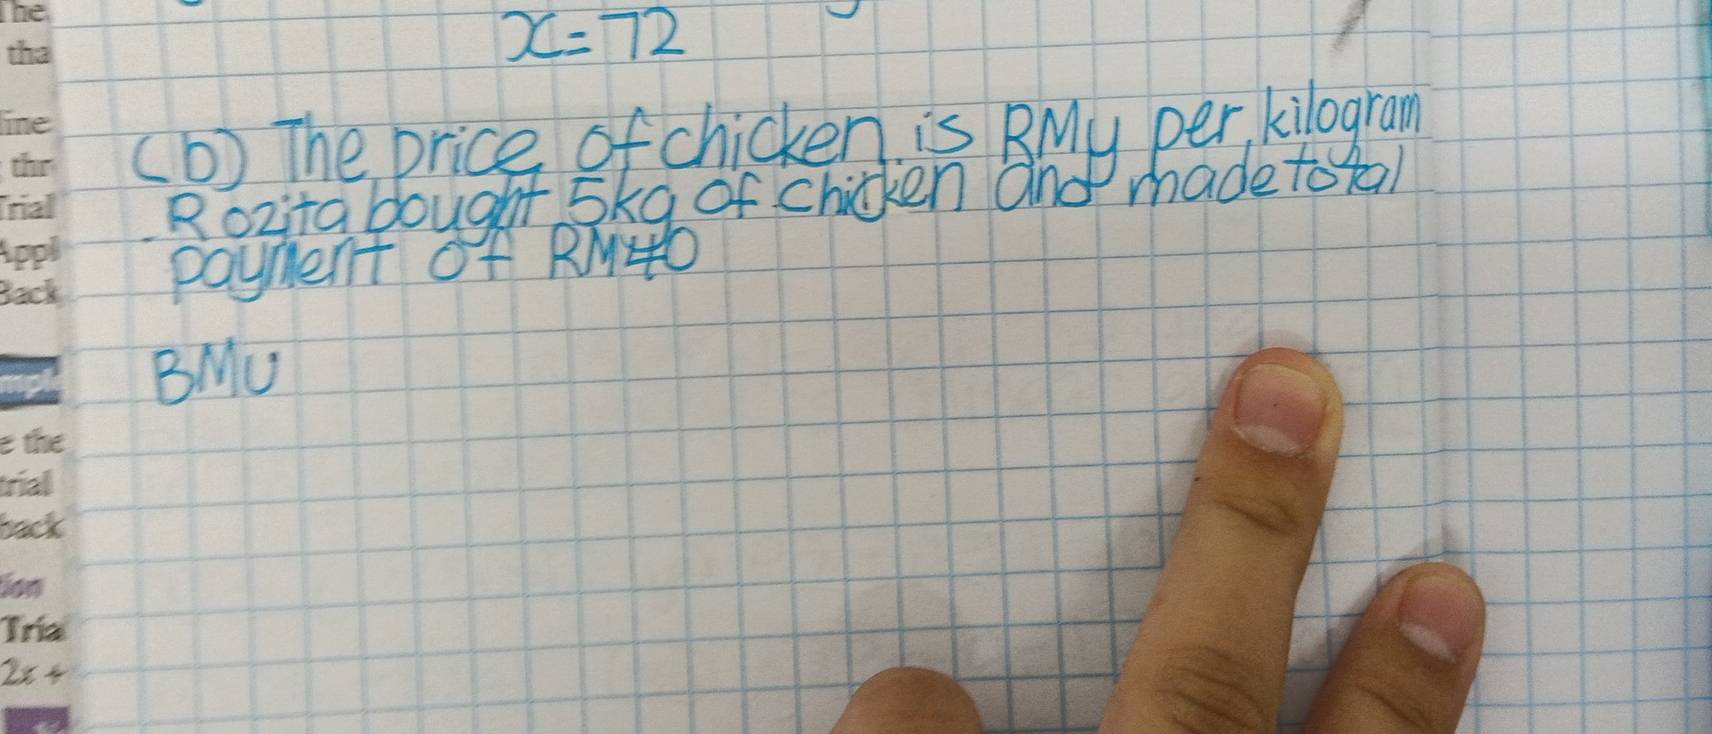 The
tha
line
thr
Trial
Appl
Back
mple
e the
trial
back
tion
Tria
2x +
x = 72
(b) The price of chicken is RMy per kilogram
Rozita bought 5kg of chicken and made total
payment of RM40
BMU